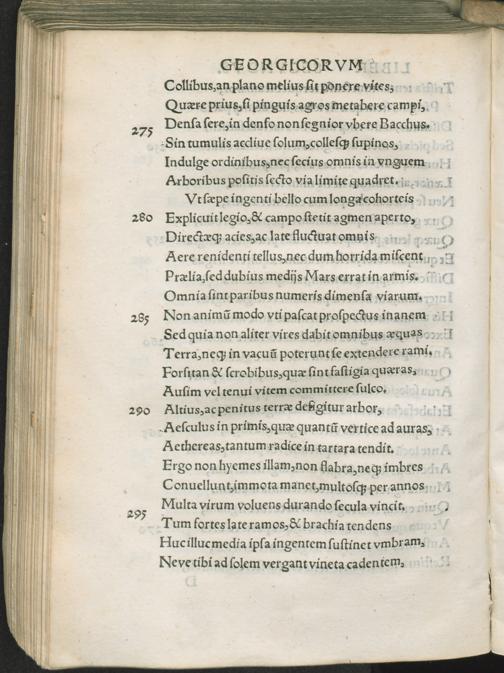 GEORGICORVM
Collibus, an plano melius sit ponere vites,
Quære prius, si pinguis agros metabere campi,
275 Densa sere, in denso non segnior vbere Bacchus.
Sin tumulis accliue solum, collesq; supinos,
Indulge ordinibus, nec secius omnis in vnguem
Arboribus positis secto via limite quadret.
Vt sæpe ingenti bello cum longa cohorteis
280 Explicuit legio, & campo stetit agmen aperto,
Directæq; acies, ac late fluctuat omnis
Aere renidenti tellus, nec dum horrida miscent
Prælia, sed dubius medijs Mars errat in armis.
Omnia sint paribus numeris dimensa viarum.
285 Non animū modo vti pascat prospectus inanem
Sed quia non aliter vires dabit omnibus æquas
Terra, neq; in vacuū poterunt se extendere rami.
Forsitan & scrobibus, quæ sint fastigia quæras,
Ausim vel tenui vitem committere sulco.
290 Altius, ac penitus terræ defigitur arbor,
Aesculus in primis, quæ quantū vertice ad auras,
Aethereas, tantum radice in tartara tendit.
Ergo non hyemes illam, non flabra, neq; imbres
Conuellunt, immota manet, multosq; per annos
295 Multa virum voluens durando secula vincit.
Tum fortes late ramos, & brachia tendens
Huc illuc media ipsa ingentem sustinet vmbram,
Neve tibi ad solem vergant vineta cadentem,